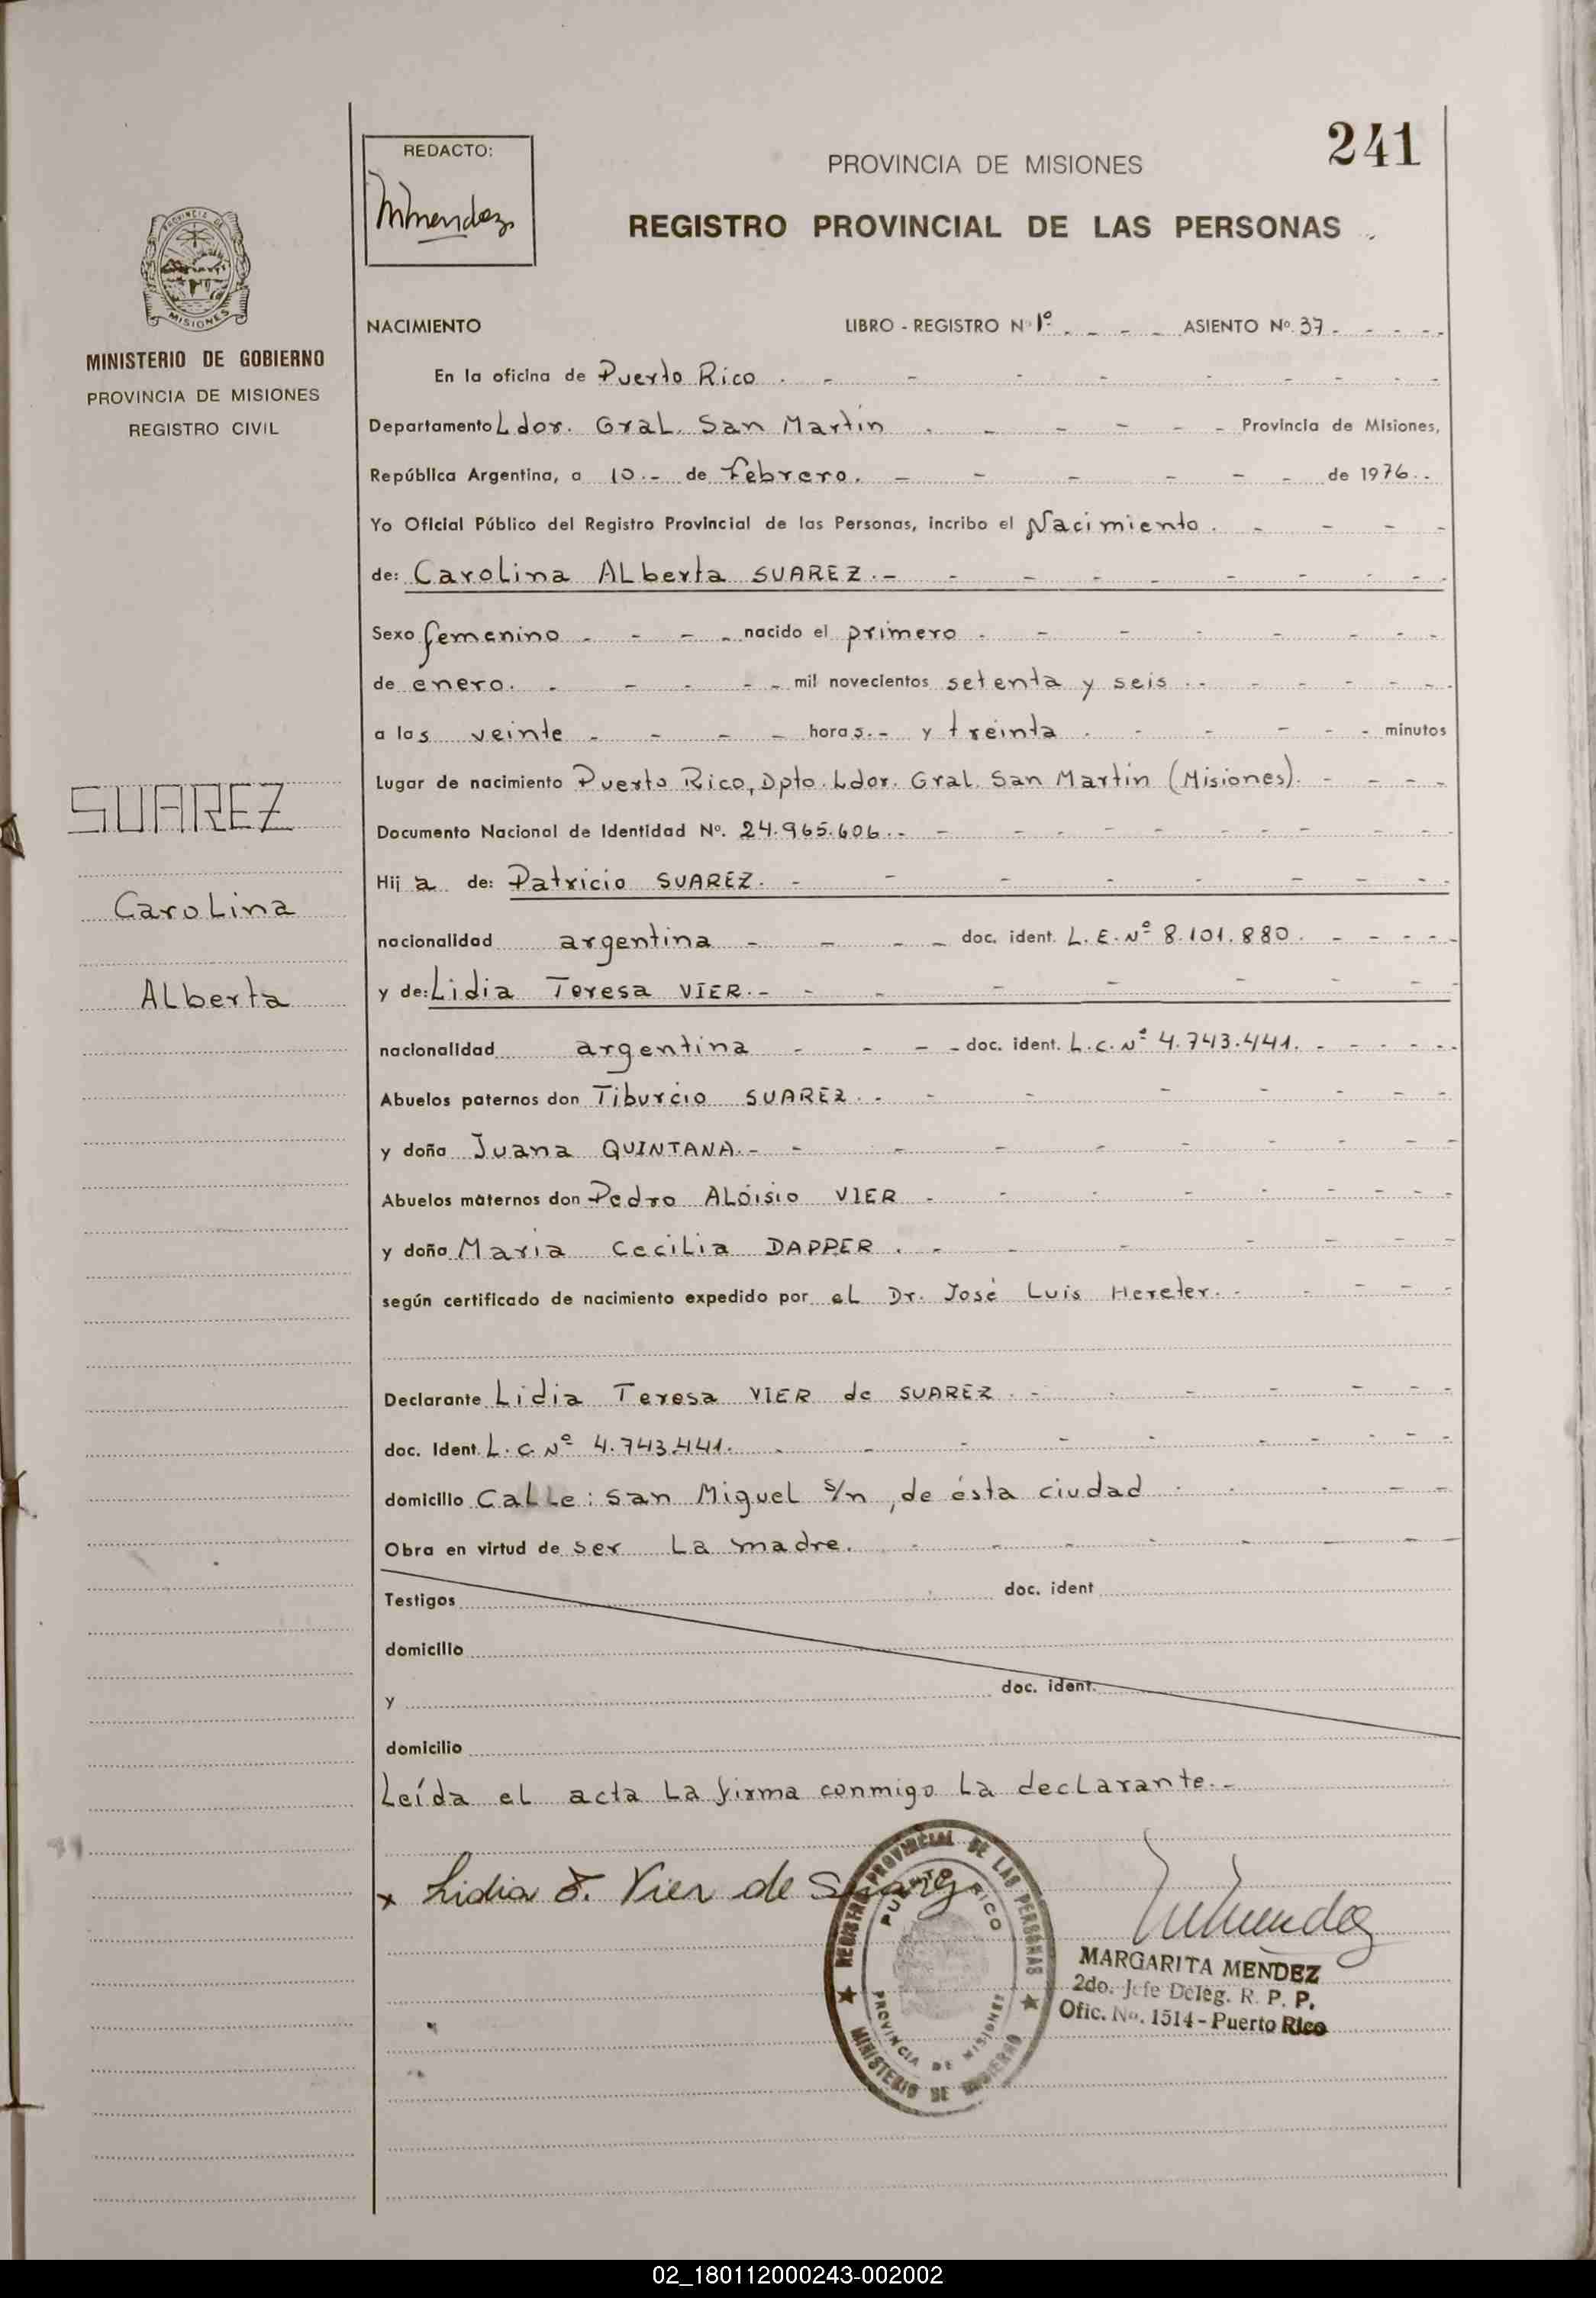 241
REDACTO:
MMendez
PROVINCIA DE MISIONES
REGISTRO PROVINCIAL DE LAS PERSONAS
PROVINCIA DE
MISIONES
MINISTERIO DE GOBIERNO
PROVINCIA DE MISIONES
REGISTRO CIVIL
NACIMIENTO LIBRO - REGISTRO Nº 1º ASIENTO Nº. 37
En la oficina de Puerto Rico
Departamento Ldor. Gral. San Martín Provincia de Misiones,
República Argentina, a 10.- de febrero. de 1976.
Yo Oficial Público del Registro Provincial de las Personas, incribo el Nacimiento.
de: Carolina Alberta SUAREZ.-
Sexo femenino nacido el primero
de enero. mil novecientos setenta y seis
a las veinte horas.- y treinta minutos
Lugar de nacimiento Puerto Rico, Dpto. Ldor. Gral. San Martín (Misiones).
Documento Nacional de Identidad Nº. 24.965.606.-
Hij a de: Patricio SUAREZ.
nacionalidad argentina doc. ident. L.E.Nº 8.101.880.
y de: Lidia Teresa VIER.-
nacionalidad argentina doc. ident. L.C.Nº 4.743.441.
Abuelos paternos don Tiburcio SUAREZ.
y doña Juana QUINTANA.-
Abuelos maternos don Pedro ALOISIO VIER
y doña Maria Cecilia DAPPER.
según certificado de nacimiento expedido por el Dr. José Luis Hereter.
Declarante Lidia Teresa VIER de SUAREZ
doc. Ident. L.C.Nº 4.743.441.
domicilio Calle: San Miguel s/n, de ésta ciudad
Obra en virtud de ser La madre.
Testigos doc. ident
domicilio
y doc. ident.
domicilio
Leída el acta La firma conmigo La declarante.-
SUAREZ
Carolina
Alberta
x Lidia T. Vier de Suarez
REGISTRO PROVINCIAL DE LAS PERSONAS
PUERTO RICO
PROVINCIA DE MISIONES
MINISTERIO DE GOBIERNO
MMendez
MARGARITA MENDEZ
2do. Jefe Deleg. R. P. P.
Ofic. No. 1514 - Puerto Rico
02_180112000243-002002